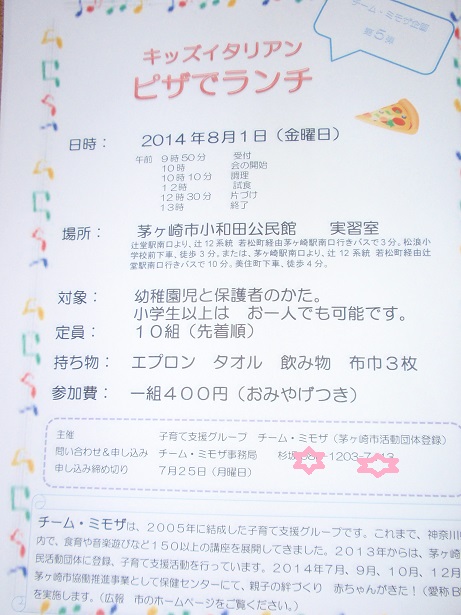 チーム・ミモザ企画
第５弾
キッズイタリアン
ピザでランチ
日時： 2014年8月1日（金曜日）
午前 9時50分 受付
10時 会の開始
10時10分 調理
12時 試食
12時30分 片づけ
13時 終了
場所： 茅ヶ崎市小和田公民館 実習室
辻堂駅南口より、辻12系統 若松町経由茅ヶ崎駅南口行きバスで3分。松浪小
学校前下車、徒歩3分。または、茅ヶ崎駅南口より、辻12系統 若松町経由辻
堂駅南口行きバスで10分。美住町下車、徒歩4分。
対象： 幼稚園児と保護者のかた。
小学生以上は お一人でも可能です。
定員： １０組（先着順）
持ち物： エプロン タオル 飲み物 布巾３枚
参加費： 一組４００円（おみやげつき）
主催 子育て支援グループ チーム・ミモザ（茅ヶ崎市活動団体登録）
問い合わせ＆申し込み チーム・ミモザ事務局 杉 -1203-7
申し込み締め切り 7月25日（月曜日）
チーム・ミモザは、2005年に結成した子育て支援グループです。これまで、神奈川
内で、食育や音楽遊びなど150以上の講座を展開してきました。2013年からは、茅ヶ
民活動団体に登録、子育て支援活動を行っています。2014年7月、9月、10月、12月
茅ヶ崎市協働推進事業として保健センターにて、親子の絆づくり 赤ちゃんがきた！（愛称B
を実施します。（広報 市のホームページをご覧ください。）